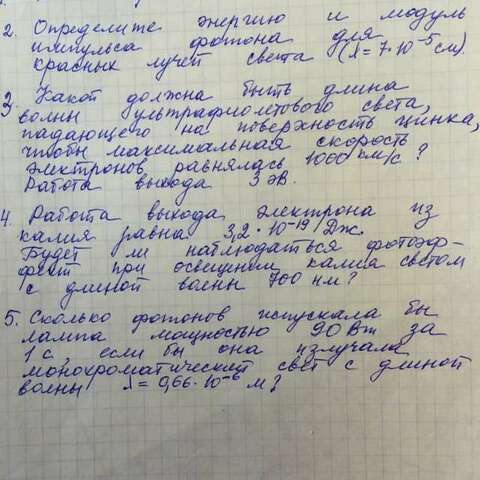 2. Определите энергию и модуль
импульса фотона для
красных лучей света (λ=7·10⁻⁵ см).
3. Какой должна быть длина
волны ультрафиолетового света,
падающего на поверхность цинка,
чтобы максимальная скорость
электронов равнялась 1000 км/с?
Работа выхода 3 эВ.
4. Работа выхода электрона из
калия равна 3,2·10⁻¹⁹ Дж.
Будет ли наблюдаться фотоэф-
фект при освещении калия светом
с длиной волны 700 нм?
5. Сколько фотонов испускала бы
лампа мощностью 90 Вт за
1 с, если бы она излучала
монохроматический свет с длиной
волны λ=0,66·10⁻⁶ м?